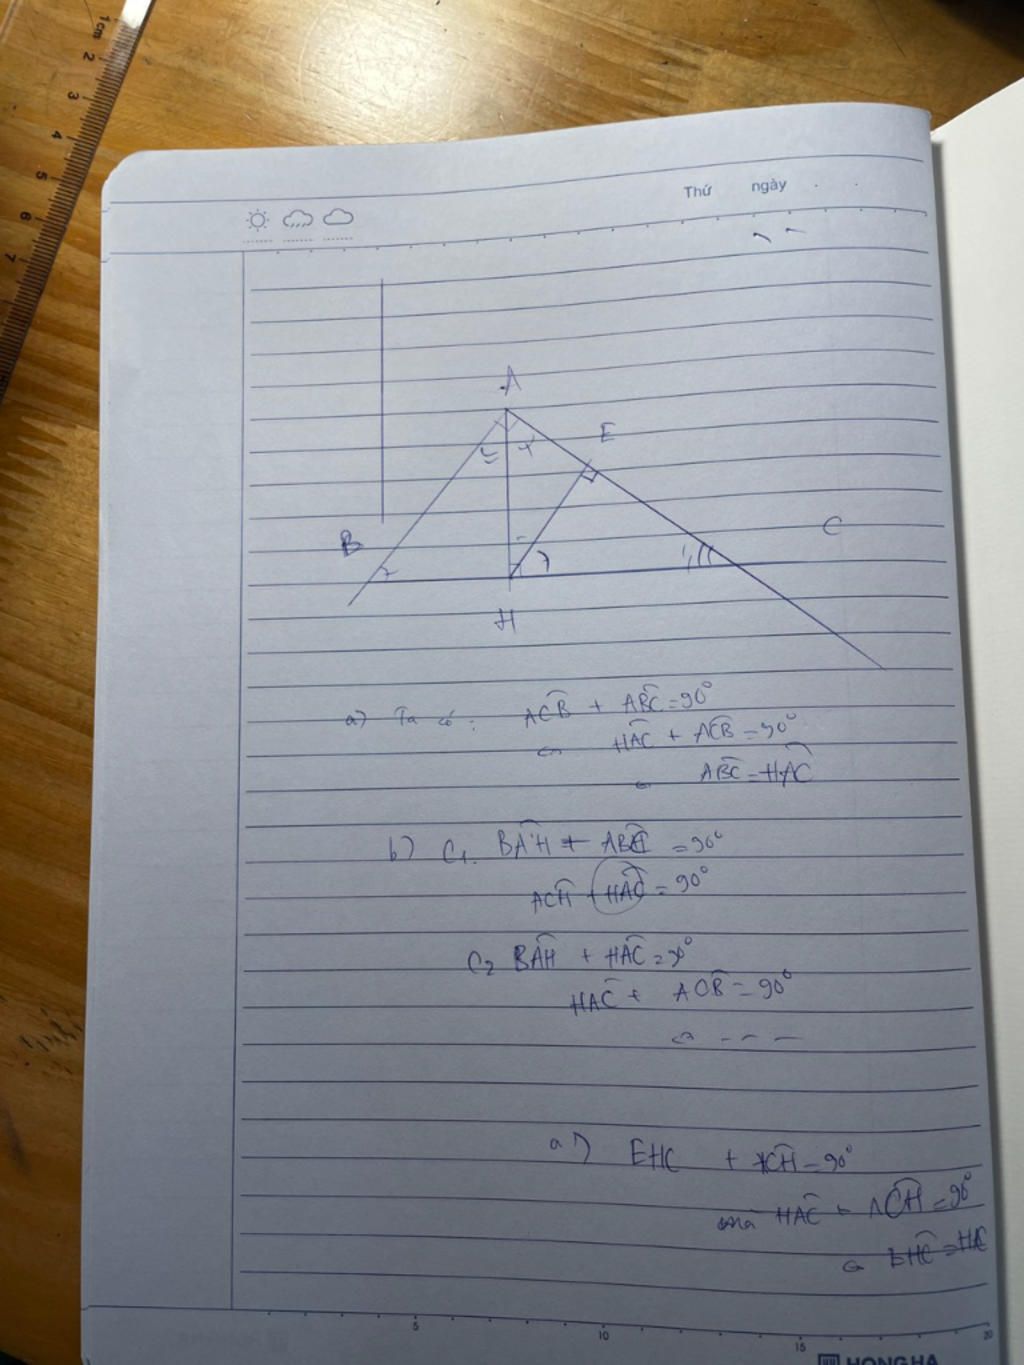 1cm
2
3
4
5
6
7
Thứ ngày
A
E
B
C
H
a) Ta có: ACB + ABC = 90°
HAC + ACB = 90°
ABC = HAC
b) C1. BAH + = 90°
ACH + HAC = 90°
C2 BAH + HAC =
HAC + ACB = 90°
a) EHC + = 90°
mà HAC + ACH = 90°
5 10 15 20
HONG HA